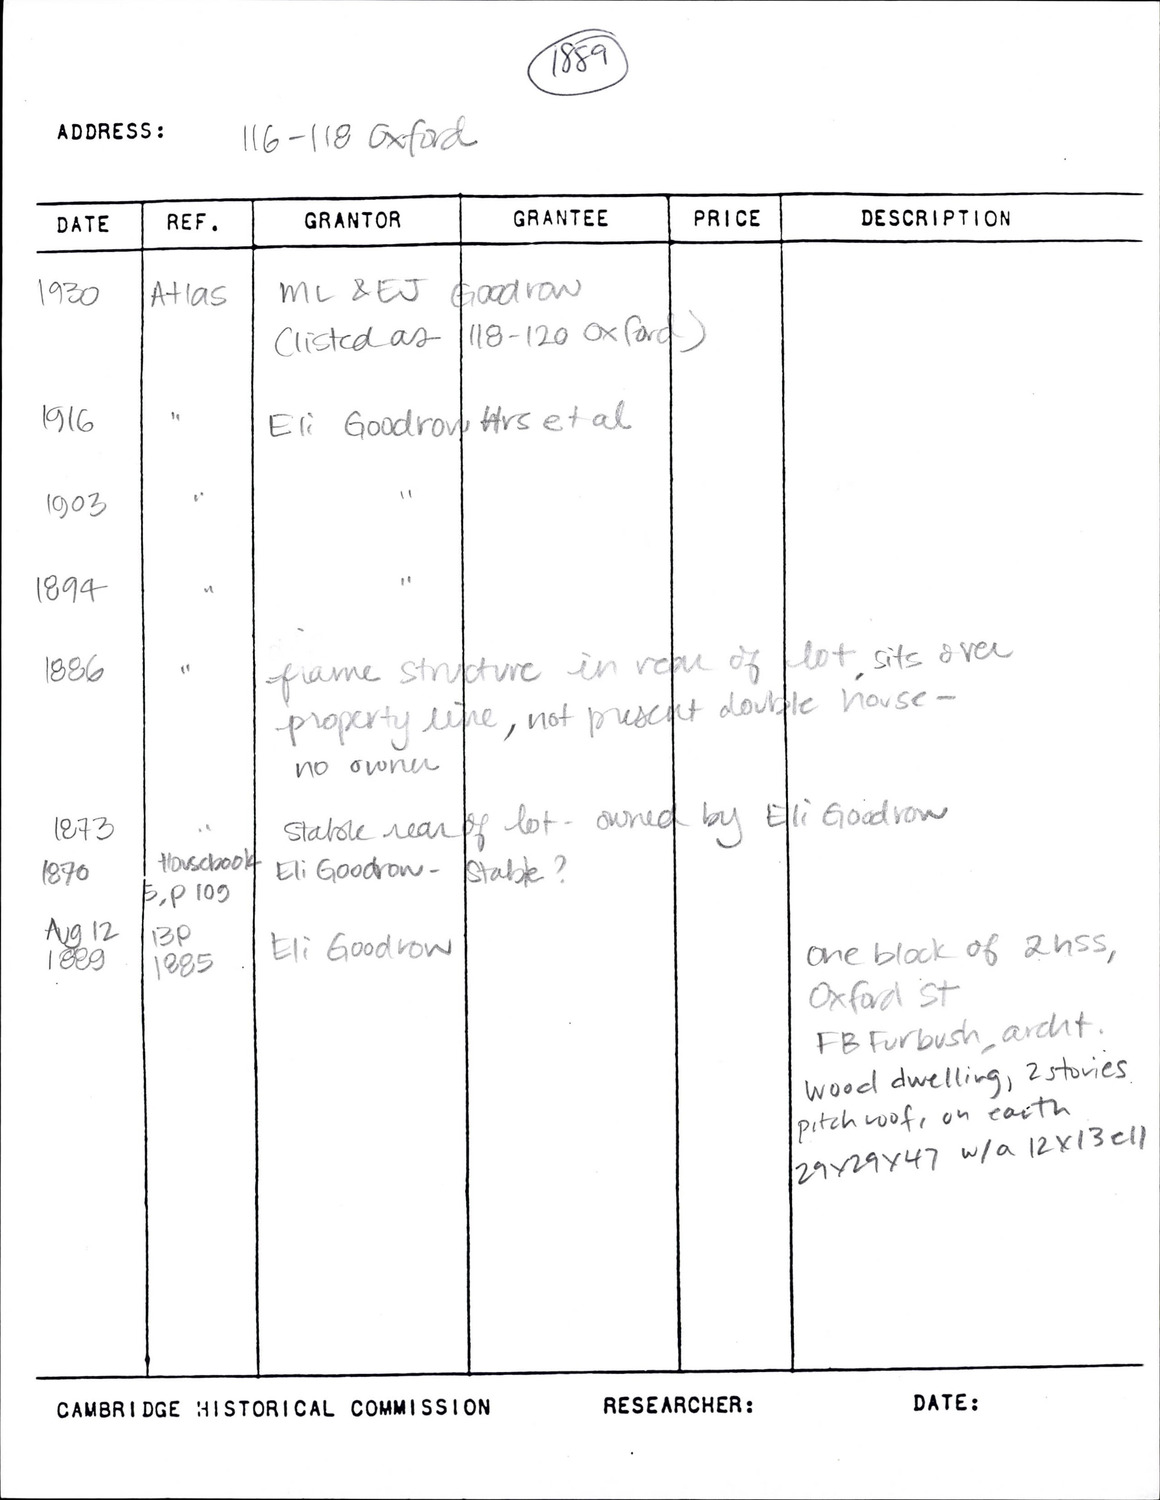 1889
ADDRESS: 116-118 Oxford
DATE REF. GRANTOR GRANTEE PRICE DESCRIPTION
1930 Atlas ML & EJ Goodrow
(listed as 118-120 Oxford)
1916 " Eli Goodrow Hrs et al
1903 " "
1894 " "
1886 " frame structure in rear of lot, sits over
property line, not present double house -
no owner
1873 " stable rear of lot - owned by Eli Goodrow
1870 Housebook Eli Goodrow - Stable?
5, p 109
Aug 12 BP Eli Goodrow one block of 2 hss,
1889 1885
Oxford St
FB Furbush, archt.
wood dwelling, 2 stories
pitch roof, on earth
29x29x47 w/a 12x13 ell
CAMBRIDGE HISTORICAL COMMISSION RESEARCHER: DATE: